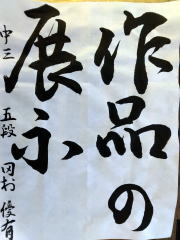 作品の
展示
中三 五段 田村優有